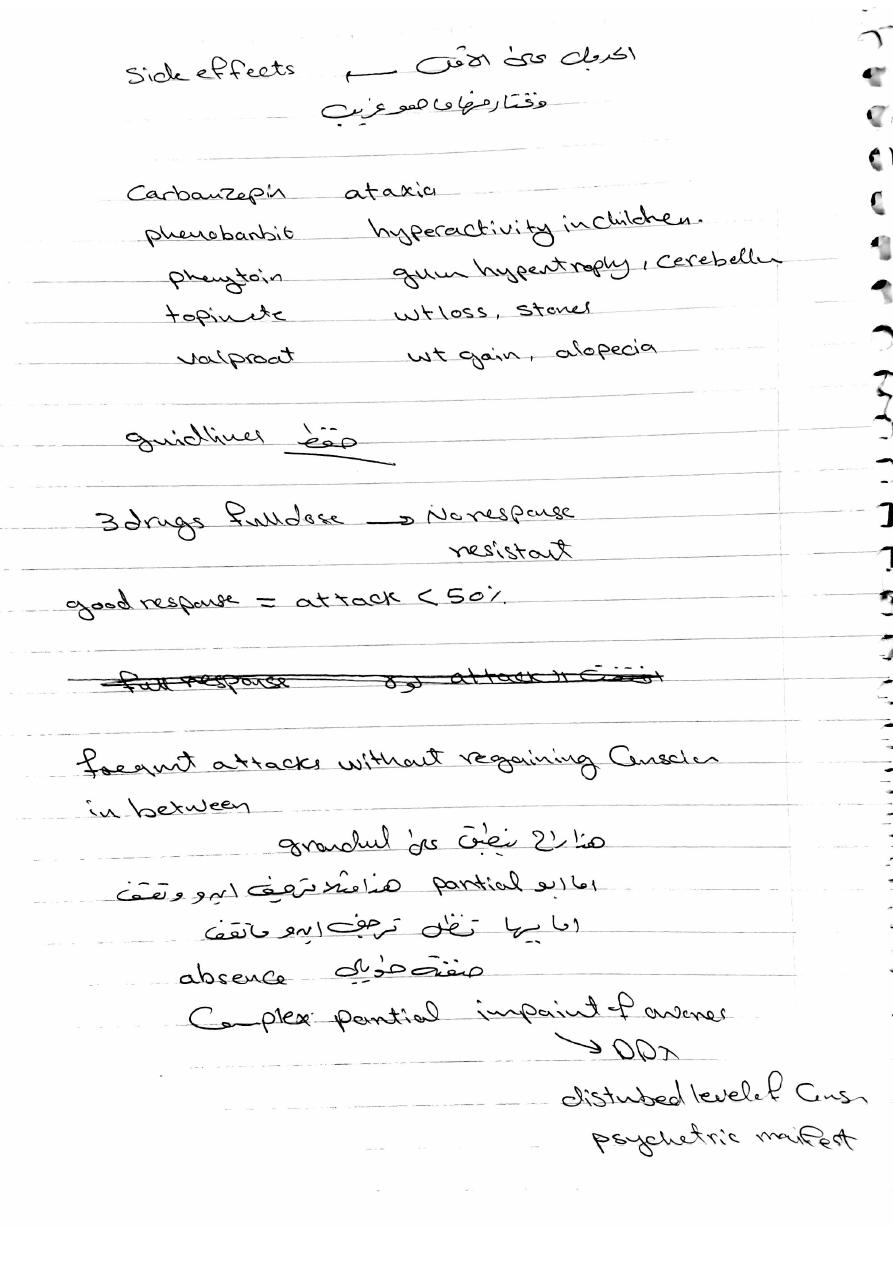 Side effects الجدول على الأقل
ونختار منها ما هو غريب
Carbamzepin ataxia
phenobarbit hyperactivity in children.
phenytoin gum hypertrophy, cerebellu
topimete wt loss, stones
valproat wt gain, alopecia
guidlines فقط
3 drugs full dose → No response
resistant
good response = attack < 50%
full response attack
frequnt attacks without regaining Conscien
in between
هذا راح ينطبق على grandmal
اما ابو partial هذا مثلا ترجف ايدو وتقف
اما بيها تظل ترجف ايدو ماتقف
absence صفنة طويلة
Complex partial impaint of awarnes
↘ DDx
disturbed level of Cons
psychetric maifest